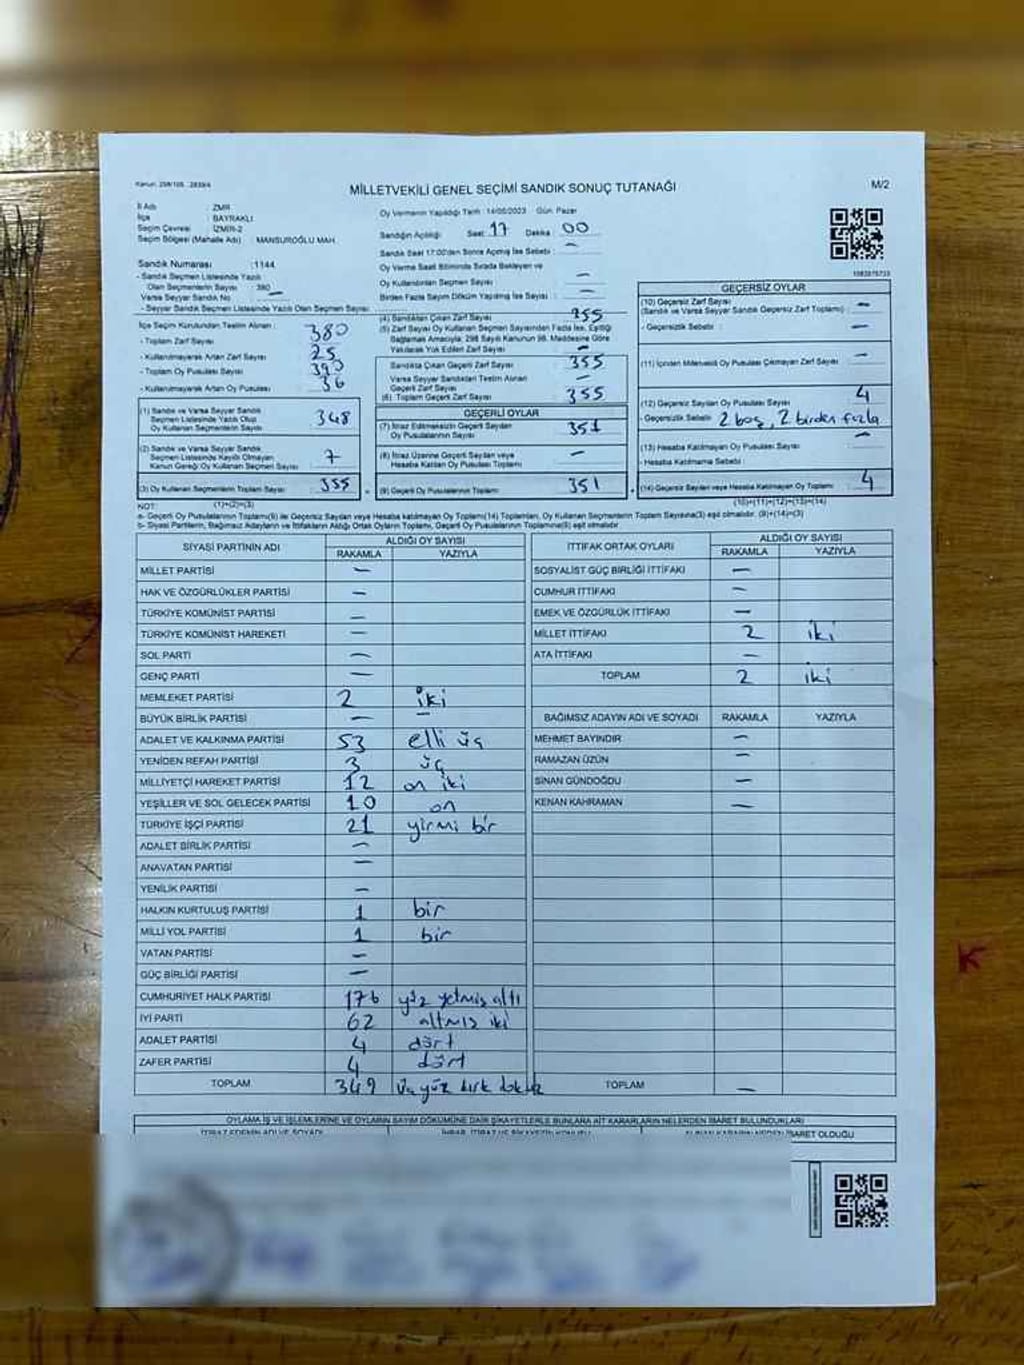 Kanun: 298/105 , 2839/4
MİLLETVEKİLİ GENEL SEÇİMİ SANDIK SONUÇ TUTANAĞI
M/2
İl Adı : İZMİR
İlçe : BAYRAKLI
Seçim Çevresi : İZMİR-2
Seçim Bölgesi (Mahalle Adı) : MANSUROĞLU MAH.
Sandık Numarası :1144
- Sandık Seçmen Listesinde Yazılı
Olan Seçmenlerin Sayısı : 380
Varsa Seyyar Sandık No : —
- Seyyar Sandık Seçmen Listesinde Yazılı Olan Seçmen Sayısı:
Oy Vermenin Yapıldığı Tarih :14/05/2023 Gün: Pazar
Sandığın Açıldığı: Saat: 17 Dakika : 00
Sandık Saat 17:00'den Sonra Açılmış İse Sebebi : —
Oy Verme Saati Bitiminde Sırada Bekleyen ve
Oy Kullandırılan Seçmen Sayısı : —
Birden Fazla Sayım Döküm Yapılmış İse Sayısı : —
İlçe Seçim Kurulundan Teslim Alınan :
- Toplam Zarf Sayısı : 380
- Kullanılmayarak Artan Zarf Sayısı : 25
- Toplam Oy Pusulası Sayısı : 390
- Kullanılmayarak Artan Oy Pusulası : 36
(1) Sandık ve Varsa Seyyar Sandık
Seçmen Listesinde Yazılı Olup
Oy Kullanan Seçmenlerin Sayısı : 348
(2) Sandık ve Varsa Seyyar Sandık
Seçmen Listesinde Kayıtlı Olmayan
Kanun Gereği Oy Kullanan Seçmen Sayısı : 7
(3) Oy Kullanan Seçmenlerin Toplam Sayısı : 355
(1)+(2)=(3)
(4) Sandıktan Çıkan Zarf Sayısı : 355
(5) Zarf Sayısı Oy Kullanan Seçmen Sayısından Fazla ise, Eşitliği
Sağlamak Amacıyla; 298 Sayılı Kanunun 98. Maddesine Göre
Yakılarak Yok Edilen Zarf Sayısı : —
Sandıkta Çıkan Geçerli Zarf Sayısı : 355
Varsa Seyyar Sandıktan Teslim Alınan
Geçerli Zarf Sayısı : —
(6) Toplam Geçerli Zarf Sayısı : 355
GEÇERLİ OYLAR
(7) İtiraz Edilmeksizin Geçerli Sayılan
Oy Pusulalarının Sayısı : 351
(8) İtiraz Üzerine Geçerli Sayılan veya
Hesaba Katılan Oy Pusulaları Toplamı : —
(9) Geçerli Oy Pusulalarının Toplamı : 351
GEÇERSİZ OYLAR
(10) Geçersiz Zarf Sayısı
(Sandık ve Varsa Seyyar Sandık Geçersiz Zarf Toplamı) : —
- Geçersizlik Sebebi : —
(11) İçinden Milletvekili Oy Pusulası Çıkmayan Zarf Sayısı : —
(12) Geçersiz Sayılan Oy Pusulası Sayısı : 4
- Geçersizlik Sebebi : 2 boş, 2 birden fazla
(13) Hesaba Katılmayan Oy Pusulası Sayısı : —
- Hesaba Katılmama Sebebi :
(14) Geçersiz Sayılan veya Hesaba Katılmayan Oy Toplamı : 4
(10)+(11)+(12)+(13)=(14)
NOT:
a- Geçerli Oy Pusulalarının Toplamı(9) ile Geçersiz Sayılan veya Hesaba katılmayan Oy Toplamı(14) Toplamları, Oy Kullanan Seçmenlerin Toplam Sayısına(3) eşit olmalıdır. (9)+(14)=(3)
b- Siyasi Partilerin, Bağımsız Adayların ve İttifakların Aldığı Ortak Oyların Toplamı, Geçerli Oy Pusulalarının Toplamına(9) eşit olmalıdır
SİYASİ PARTİNİN ADI ALDIĞI OY SAYISI
RAKAMLA YAZIYLA
MİLLET PARTİSİ —
HAK VE ÖZGÜRLÜKLER PARTİSİ —
TÜRKİYE KOMÜNİST PARTİSİ —
TÜRKİYE KOMÜNİST HAREKETİ —
SOL PARTİ —
GENÇ PARTİ —
MEMLEKET PARTİSİ 2 iki
BÜYÜK BİRLİK PARTİSİ — —
ADALET VE KALKINMA PARTİSİ 53 elli üç
YENİDEN REFAH PARTİSİ 3 üç
MİLLİYETÇİ HAREKET PARTİSİ 12 on iki
YEŞİLLER VE SOL GELECEK PARTİSİ 10 on
TÜRKİYE İŞÇİ PARTİSİ 21 yirmi bir
ADALET BİRLİK PARTİSİ —
ANAVATAN PARTİSİ —
YENİLİK PARTİSİ —
HALKIN KURTULUŞ PARTİSİ 1 bir
MİLLİ YOL PARTİSİ 1 bir
VATAN PARTİSİ —
GÜÇ BİRLİĞİ PARTİSİ —
CUMHURİYET HALK PARTİSİ 176 yüz yetmiş altı
İYİ PARTİ 62 altmış iki
ADALET PARTİSİ 4 dört
ZAFER PARTİSİ 4 dört
TOPLAM 349 üç yüz kırk dokuz
İTTİFAK ORTAK OYLARI ALDIĞI OY SAYISI
RAKAMLA YAZIYLA
SOSYALİST GÜÇ BİRLİĞİ İTTİFAKI —
CUMHUR İTTİFAKI —
EMEK VE ÖZGÜRLÜK İTTİFAKI —
MİLLET İTTİFAKI 2 iki
ATA İTTİFAKI —
TOPLAM 2 iki
BAĞIMSIZ ADAYIN ADI VE SOYADI RAKAMLA YAZIYLA
MEHMET BAYINDIR —
RAMAZAN ÜZÜN —
SİNAN GÜNDOĞDU —
KENAN KAHRAMAN —
TOPLAM —
OYLAMA İŞ VE İŞLEMLERİNE VE OYLARIN SAYIM DÖKÜMÜNE DAİR ŞİKAYETLERLE BUNLARA AİT KARARLARIN NELERDEN İBARET BULUNDUKLARI
İTİRAZ EDENİN ADI VE SOYADI